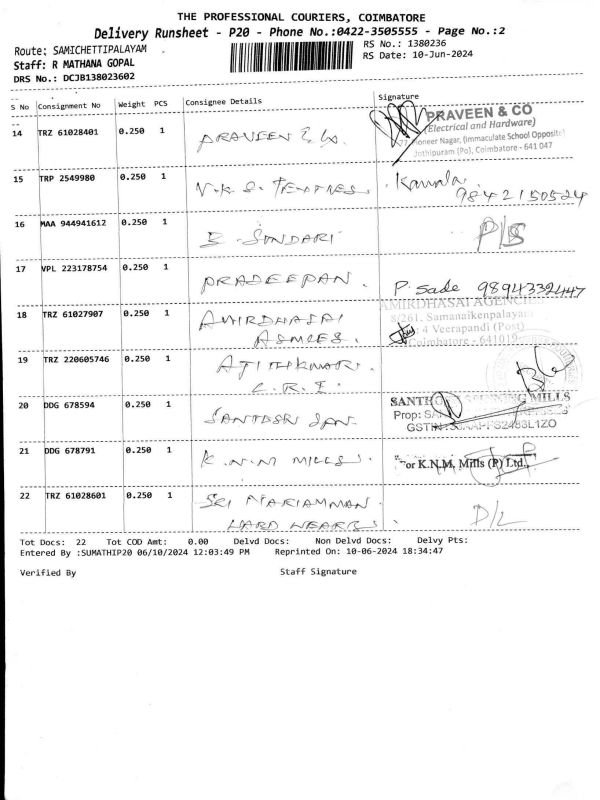 THE PROFESSIONAL COURIERS, COIMBATORE
Delivery Runsheet - P20 - Phone No.:0422-3505555 - Page No.:2
Route: SAMICHETTIPALAYAM
RS No.: 1380236
Staff: R MATHANA GOPAL
RS Date: 10-Jun-2024
DRS No.: DCJB138023602
S No Consignment No Weight PCS Consignee Details Signature
14 TRZ 61028401 0.250 1 PRAVEEN & Co.
PRAVEEN & CO
(Electrical and Hardware)
Pioneer Nagar, (Immaculate School Opposite)
Jothipuram (Po), Coimbatore - 641 047
15 TRP 2549980 0.250 1 Kamala
9842150524
16 MAA 944941612 0.250 1
17 VPL 223178754 0.250 1 PRADEEPAN. P. sade 9894332447
18 TRZ 61027907 0.250 1 AMIRDHASAI
AMIRDHASAI AGENCIE
8/261, Samanaikenpalayam
4 Veerapandi (Post)
Coimbatore - 641019
19 TRZ 220605746 0.250 1
20 DDG 678594 0.250 1
MILLS
Prop:
21 DDG 678791 0.250 1 K.N.M MILLS. For K.N.M. Mills (P) Ltd.,
22 TRZ 61028601 0.250 1 SRI MARIAMMAN D/L
HARD
Tot Docs: 22 Tot COD Amt: 0.00 Delvd Docs: Non Delvd Docs: Delvy Pts:
Entered By :SUMATHIP20 06/10/2024 12:03:49 PM Reprinted On: 10-06-2024 18:34:47
Verified By Staff Signature